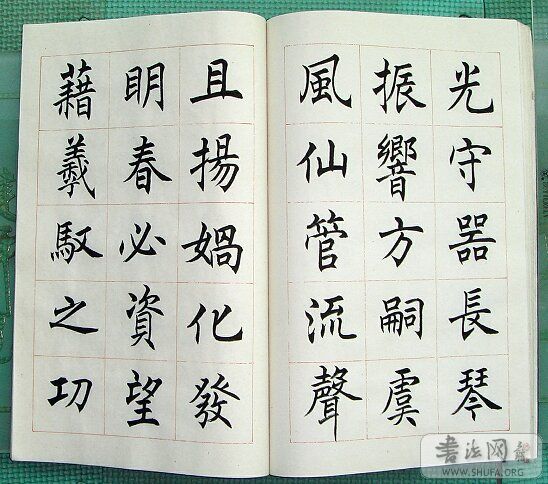 光守器長琴
振響方嗣虞
風仙管流聲
且揚媧化發
明春必資望
藉羲馭之功
书法网
WWW.SHUFA.ORG